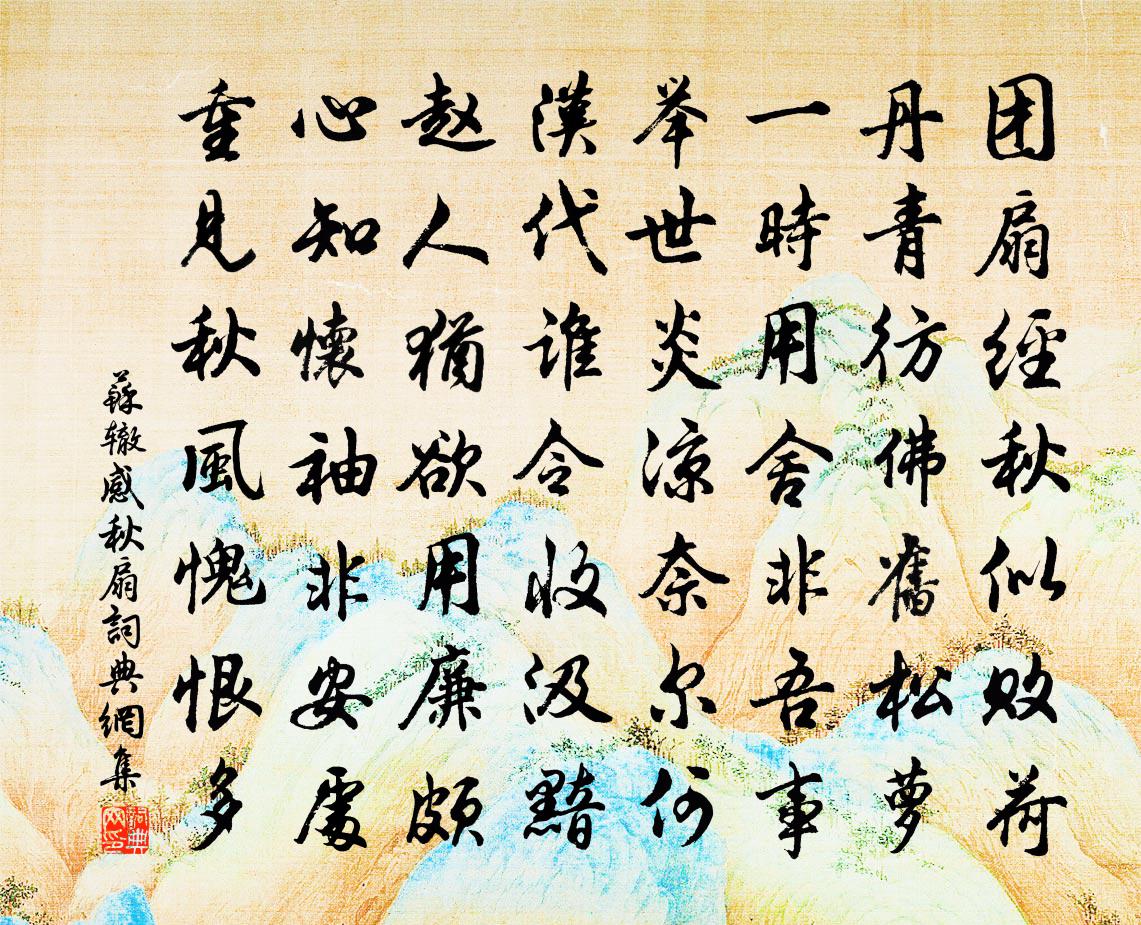 团扇經秋似败荷
丹青彷佛舊松萝
一時用舍非吾事
举世炎凉奈尔何
漢代谁令收汲黯
赵人猶欲用廉颇
心知懷袖非安處
重見秋風愧恨多
蘇辙感秋扇詞典網集
詞典网印